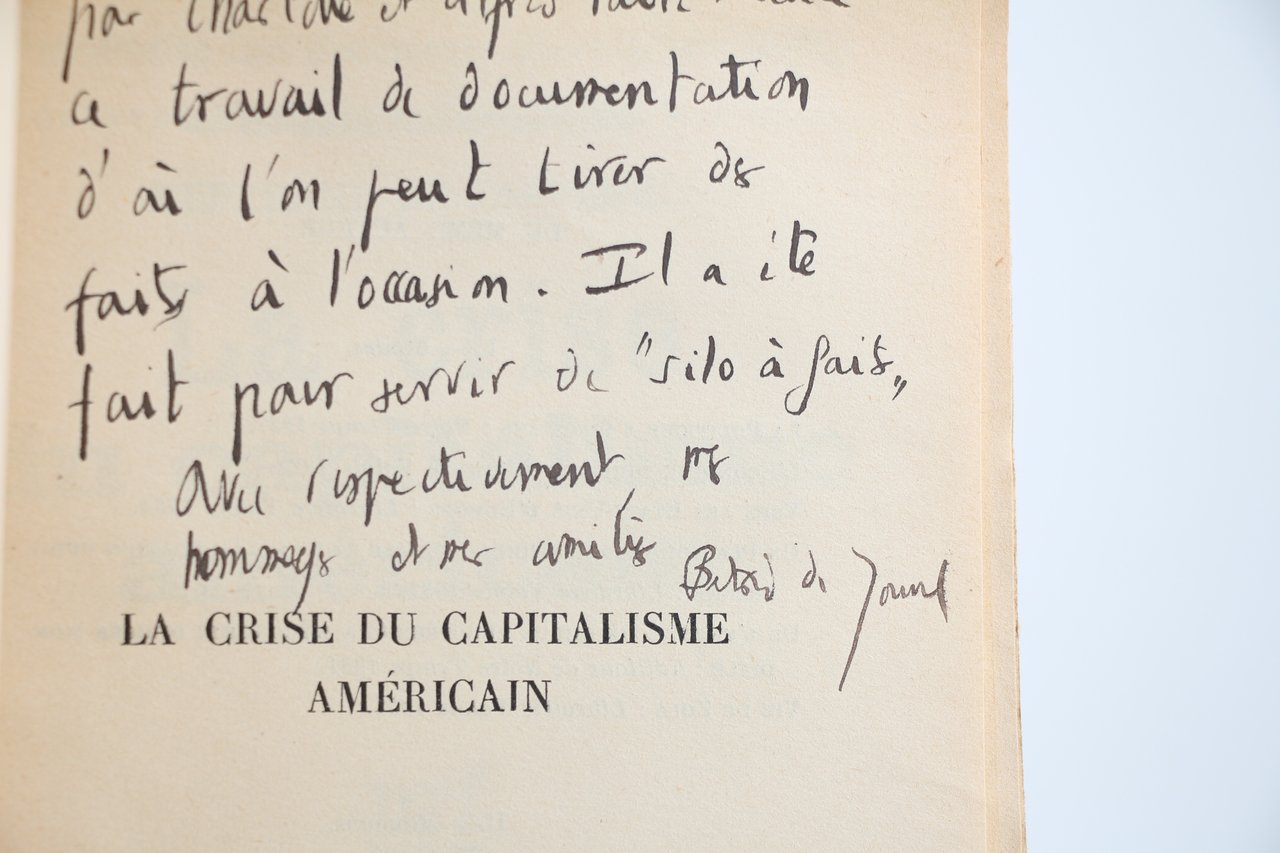 par Charlotte et d'après
ce travail de documentation
d'où l'on peut tirer des
faits à l'occasion. Il a été
fait pour servir de "silo à faits"
Avec respectivement, mes
hommages et mes amitiés
B de Jouvenel
LA CRISE DU CAPITALISME
AMÉRICAIN